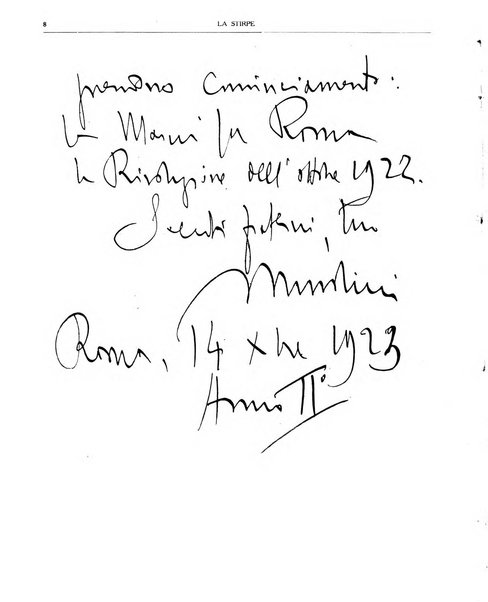 8
LA STIRPE
prendono cominciamento:
la Marcia su Roma
la Rivoluzione dell'ottobre 1922.
Saluti fraterni, tuo
Mussolini
Roma, 14 Xbre 1923
Anno II°